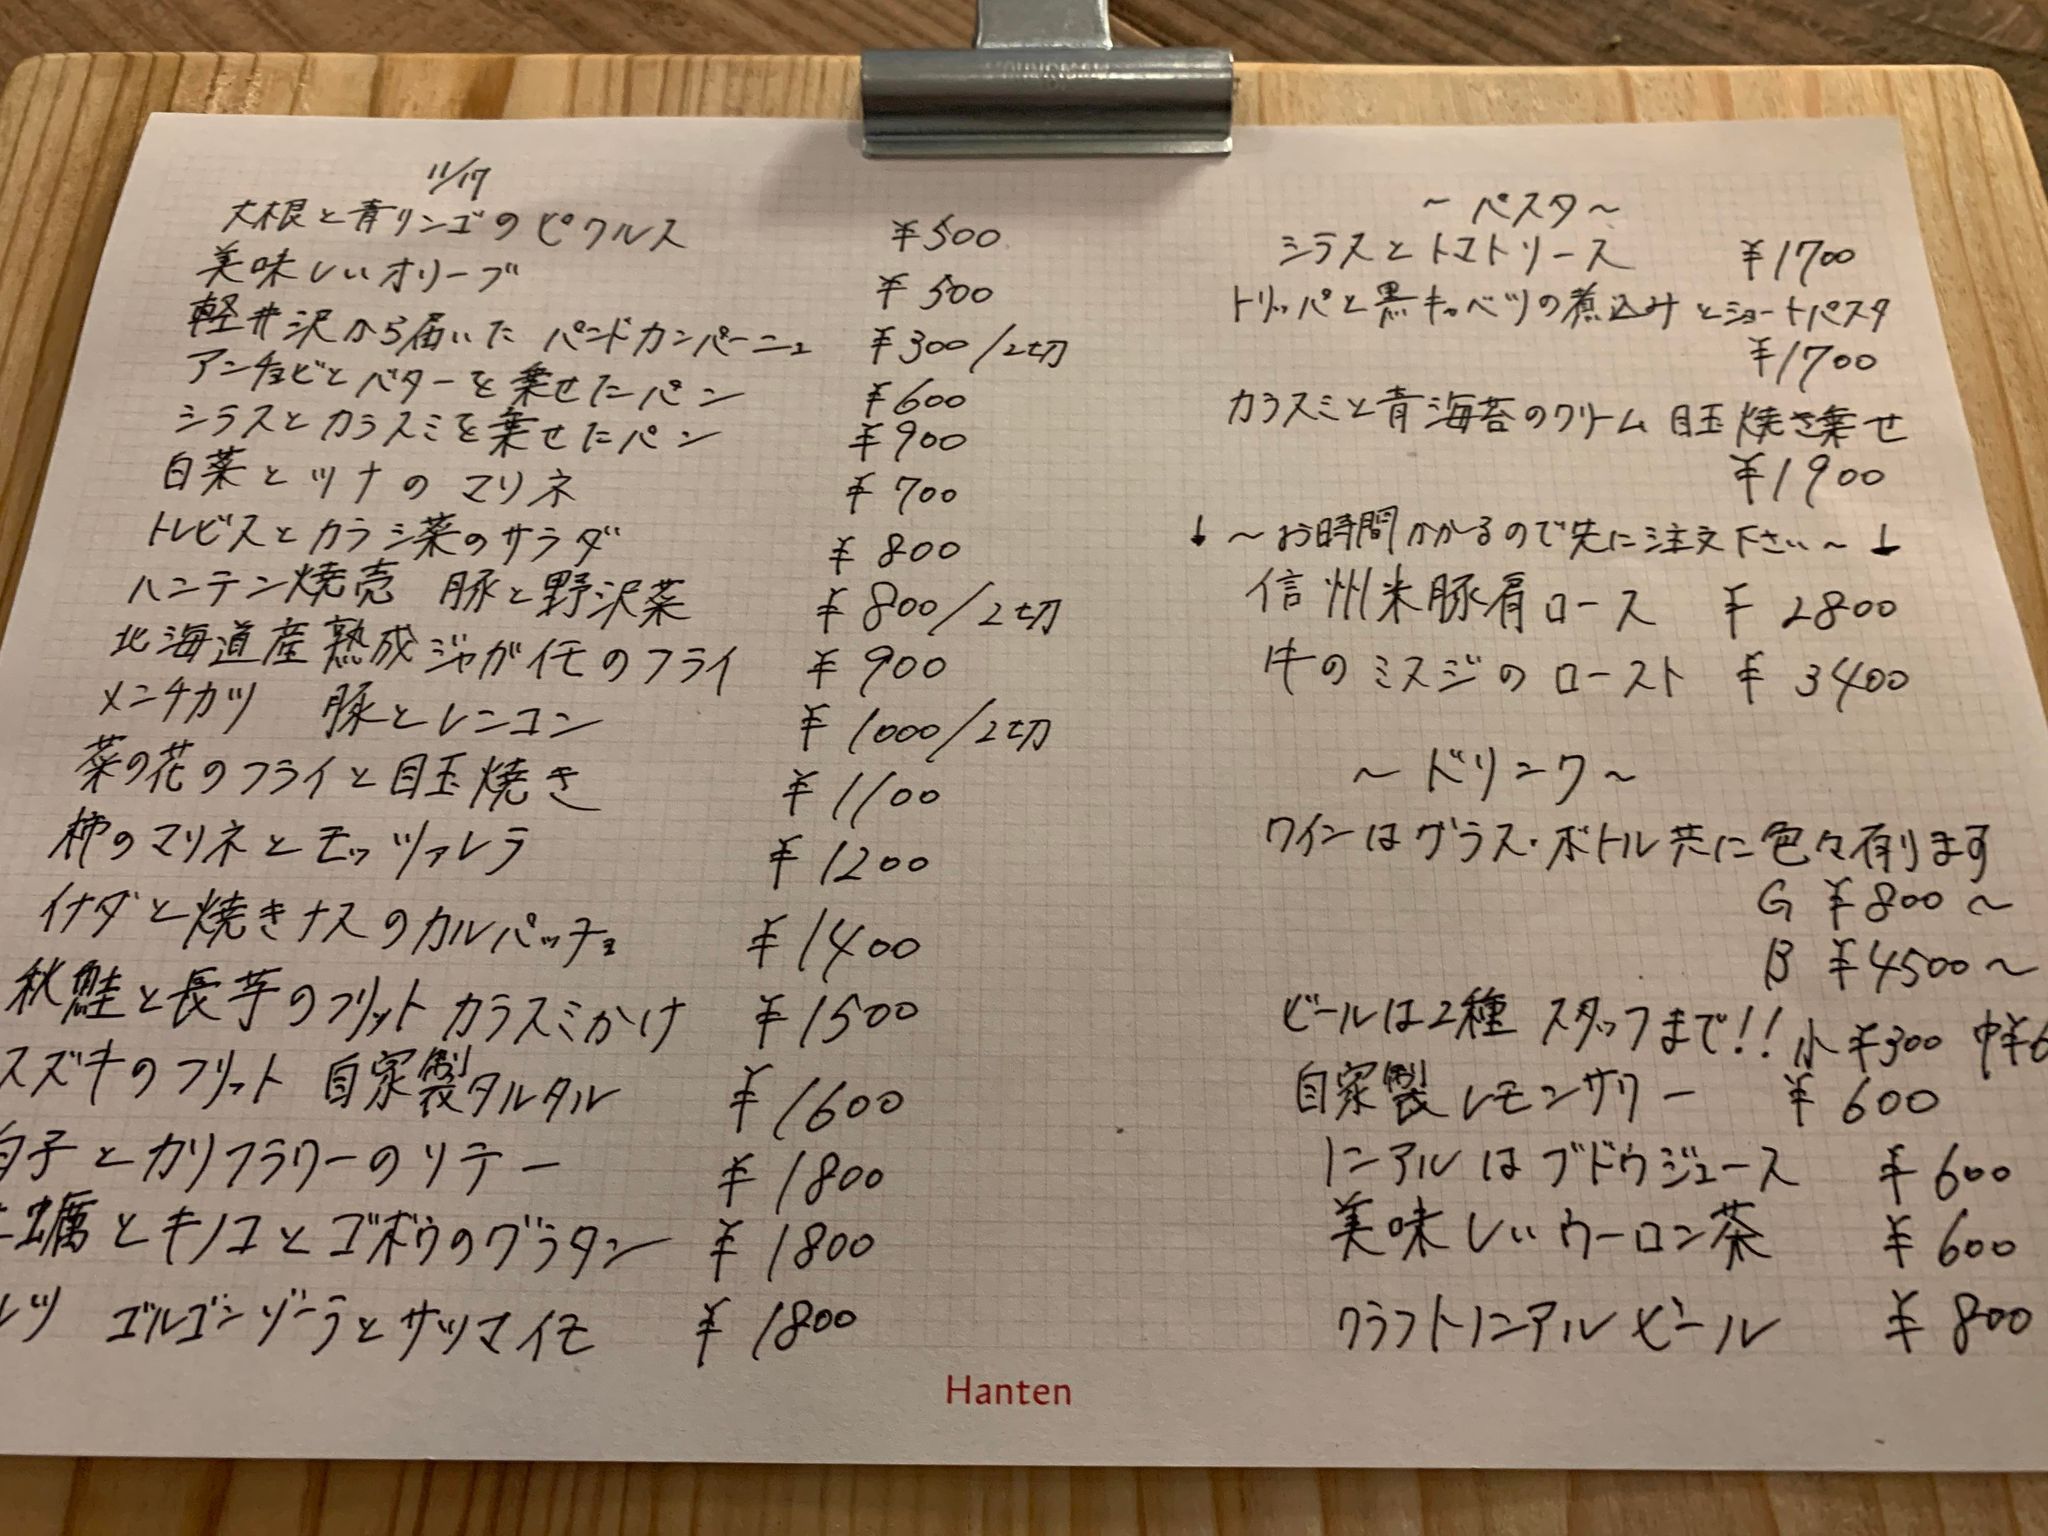 11/17
大根と青リンゴのピクルス ¥500
美味しいオリーブ ¥500
軽井沢から届いた パンドカンパーニュ ¥300/2切
アンチョビとバターを乗せたパン ¥600
シラスとカラスミを乗せたパン ¥900
白菜とツナのマリネ ¥700
トレビスとカラシ菜のサラダ ¥800
ハンテン焼売 豚と野沢菜 ¥800/2切
北海道産熟成ジャガイモのフライ ¥900
メンチカツ 豚とレンコン ¥1000/2切
菜の花のフライと目玉焼き ¥1100
柿のマリネとモッツァレラ ¥1200
イナダと焼きナスのカルパッチョ ¥1400
秋鮭と長芋のフリット カラスミかけ ¥1500
スズキのフリット 自家製タルタル ¥1600
白子とカリフラワーのソテー ¥1800
蠣とキノコとゴボウのグラタン ¥1800
ゴルゴンゾーラとサツマイモ ¥1800
～パスタ～
シラスとトマトソース ¥1700
トリッパと黒キャベツの煮込みとショートパスタ
¥1700
カラスミと青海苔のクリーム 目玉焼き乗せ
¥1900
↓～お時間かかるので先に注文下さい～↓
信州米豚肩ロース ¥2800
牛のミスジのロースト ¥3400
～ドリンク～
ワインはグラス・ボトル共に色々有ります
G ¥800～
B ¥4500～
ビールは2種 スタッフまで!! 小¥300 中¥6
自家製レモンサワー ¥600
ノンアルはブドウジュース ¥600
美味しいウーロン茶 ¥600
クラフトノンアルビール ¥800
Hanten